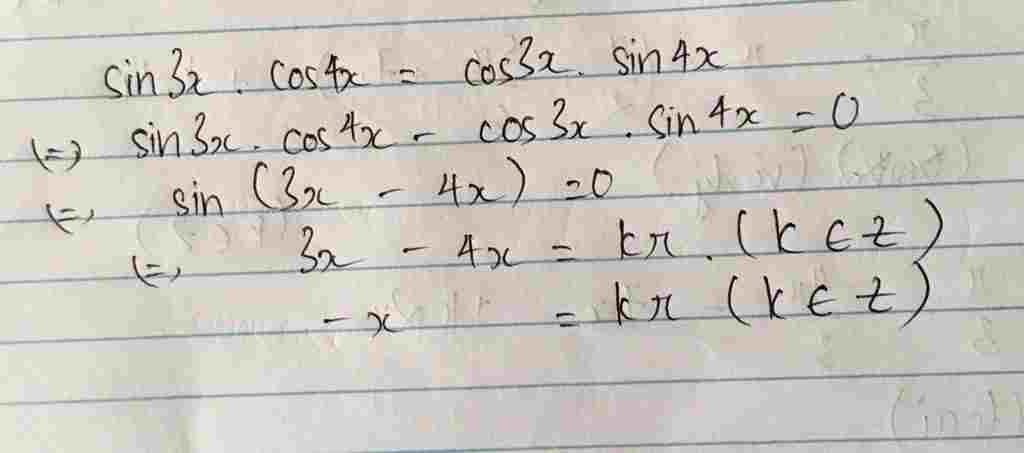 sin 3x . cos 4x = cos 3x . sin 4x
(=) sin 3x . cos 4x - cos 3x . sin 4x = 0
(=) sin (3x - 4x) = 0
(=) 3x - 4x = kπ. (k ∈ z)
- x = kπ (k ∈ z)